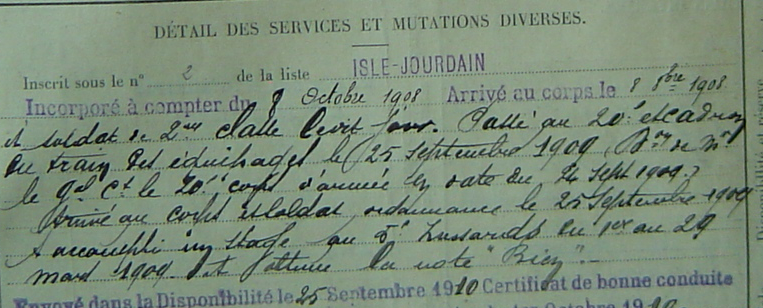 DÉTAIL DES SERVICES ET MUTATIONS DIVERSES.
Inscrit sous le nº 2 de la liste ISLE-JOURDAIN
Incorporé à compter du 8 Octobre 1908 Arrivé au corps le 8 8bre 1908
et soldat de 2me classe ledit jour. Passé au 20e escadron
du train des équipages le 25 Septembre 1909 (Don de Mr
le Gal Ct le 20e corps d'armée en date du 24 Sept 1909.)
Arrivé au corps et soldat ordonnance le 25 Septembre 1909
A accompli un stage au 5e Hussards du 1er au 29
mars 1909. et obtenu la note "Bien".
Envoyé dans la Disponibilité le 25 Septembre 1910 Certificat de bonne conduite
Octobre 1910